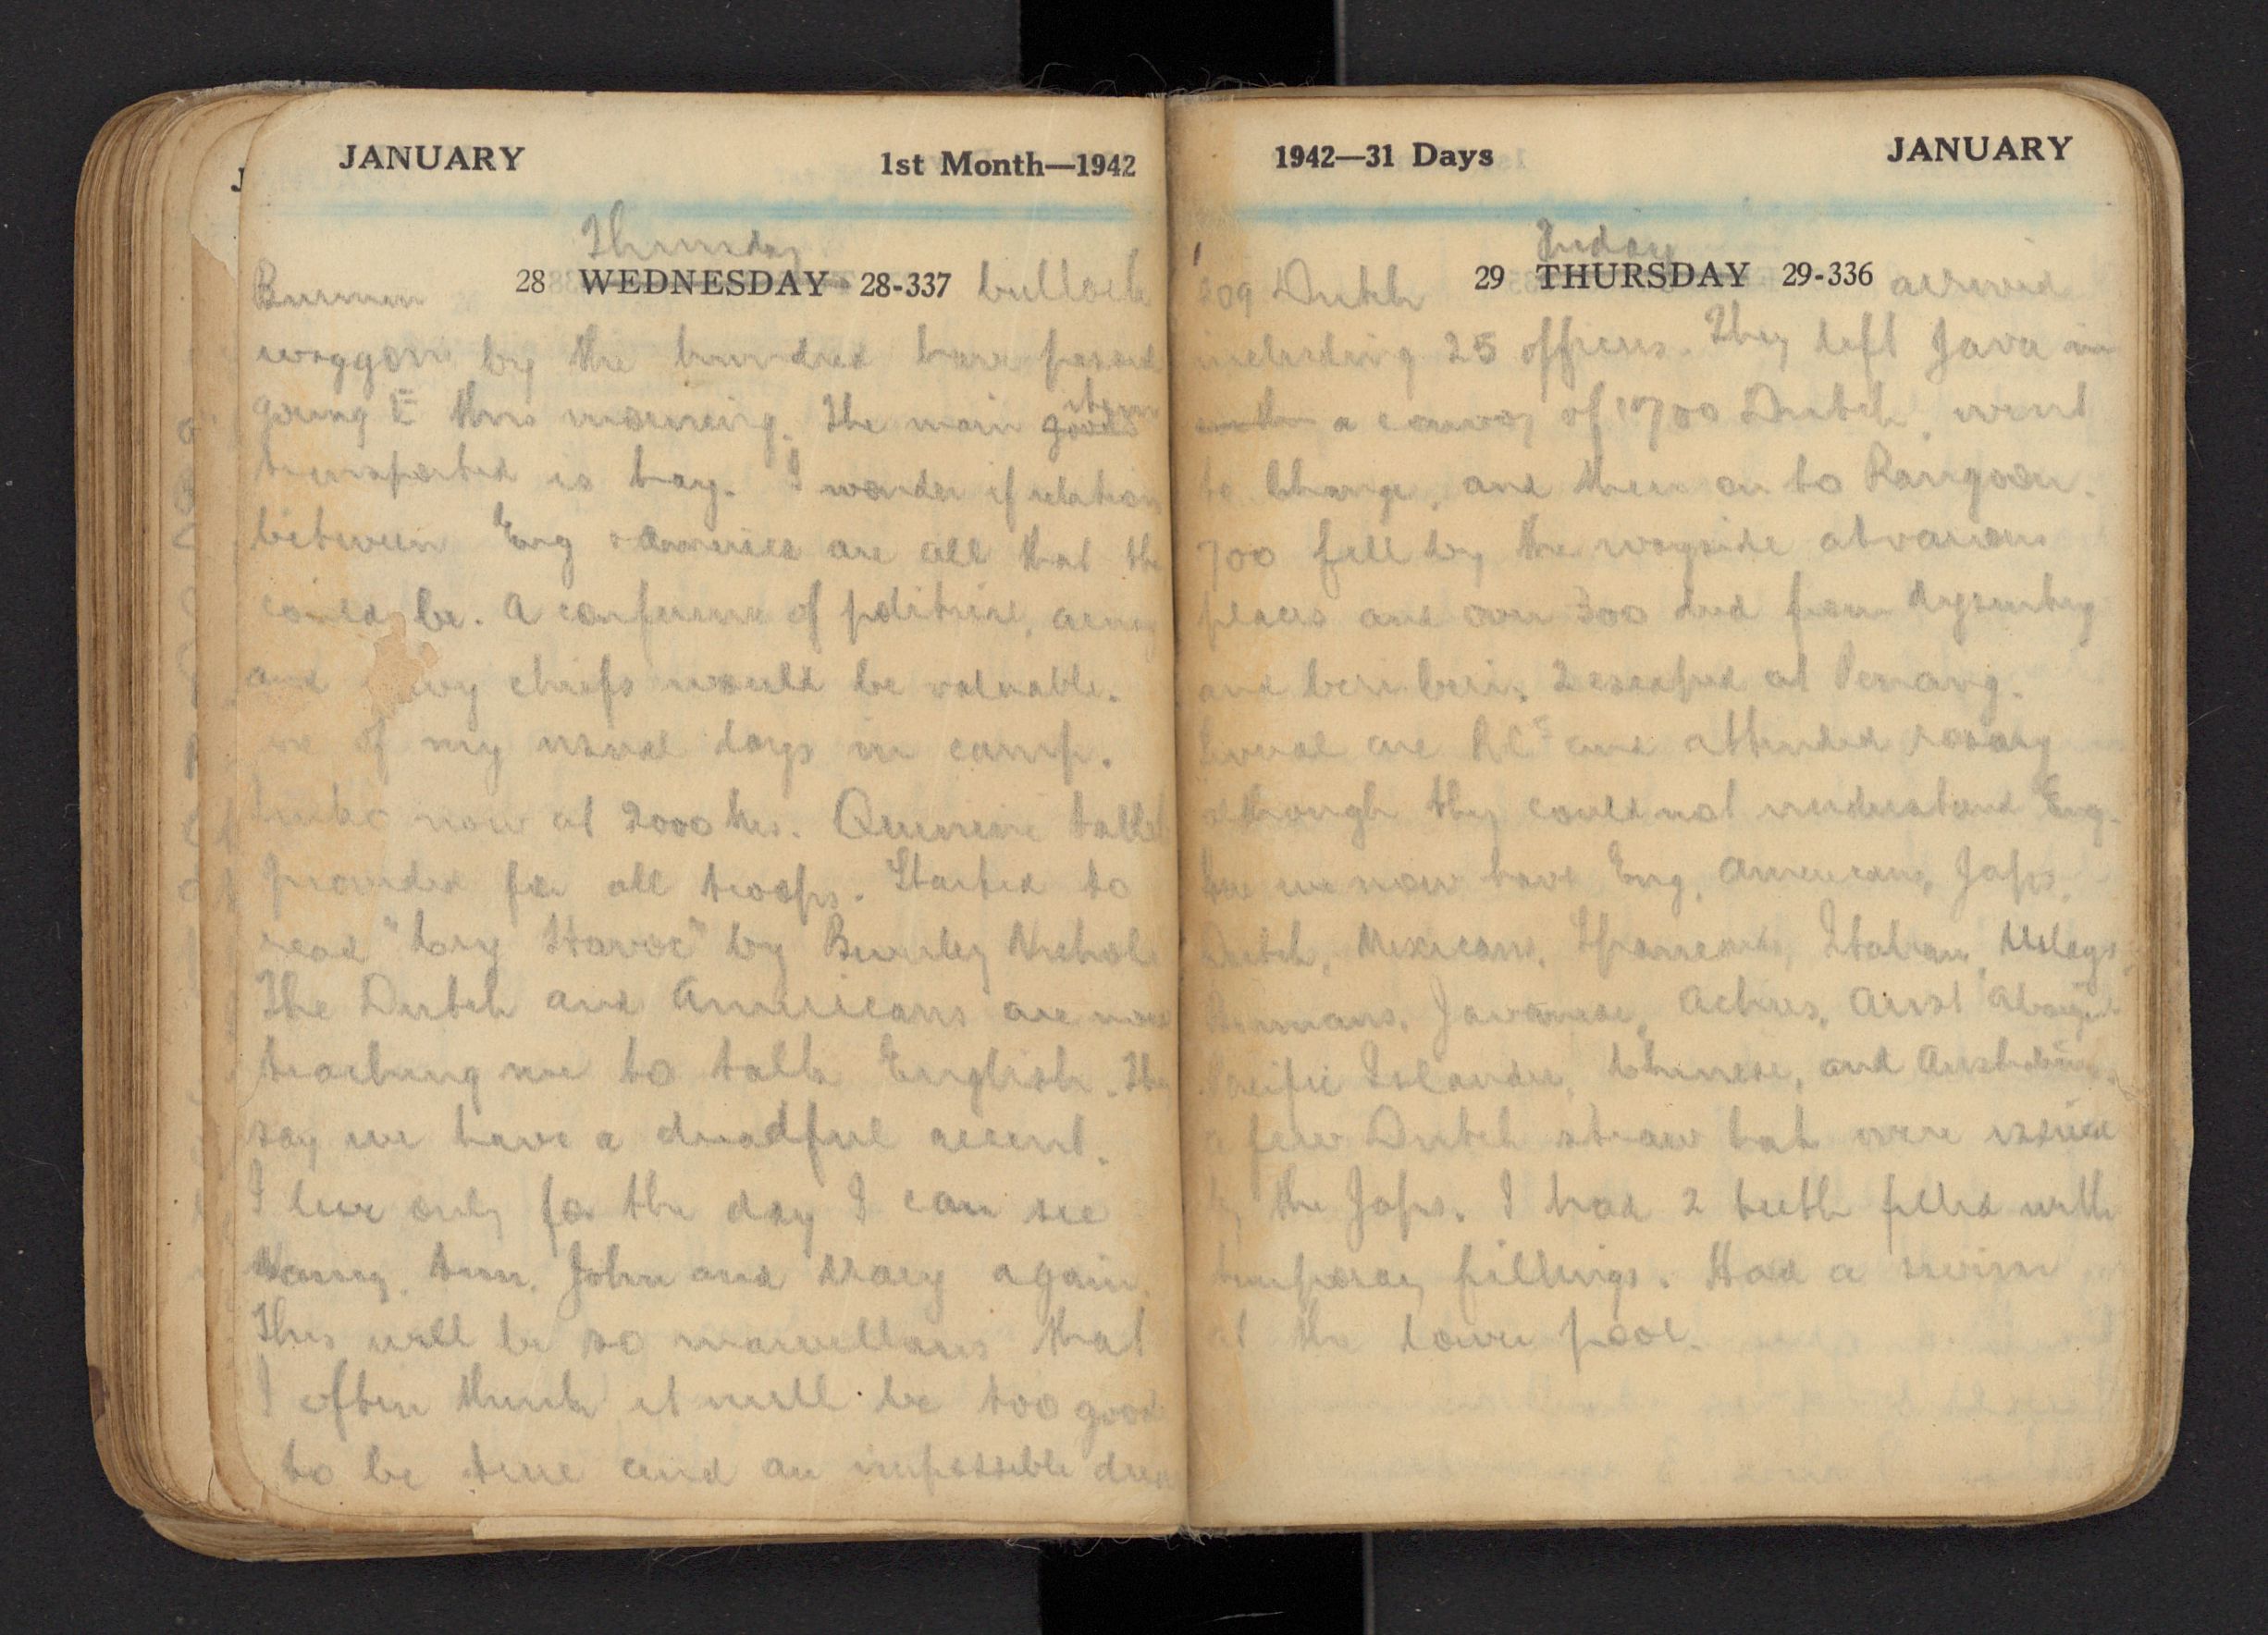 JANUARY 1st Month—1942
Thursday
28 WEDNESDAY 28-337
Burmese bullock
waggons by the hundred have passed
going E this morning. The main goods item
transported is hay. I wonder if relation
between Eng & America are all that the
could be. A conference of political, army
and chiefs would be valuable.
of my usual days in camp.
now at 2000 hrs. Quinine tablet
provided for all troops. Started to
read "Cry Havoc" by Beverley Nichols
The Dutch and Americans are now
teaching me to talk English. They
say we have a dreadful accent.
I live only for the day I can see
John and Mary again.
This will be so marvellous that
I often think it will be too good
to be true and an impossible dream
1942—31 Days JANUARY
Friday
29 THURSDAY 29-336
209 Dutch arrived
including 25 officers. They left Java in
a convoy of 1700 Dutch, went
to Changi, and then on to Rangoon.
700 fell by the wayside at various
places and over 300 died from dysentery
and beri beri. 2 escaped at Penang.
Several are RCs and attended rosary
although they could not understand Eng.
we now have Eng, Americans, Japs,
Dutch, Mexicans, Spaniards, Italian, Malays,
Burmans, Javanese, Aust Aborigi
Pacific Islander, Chinese, and Australians.
a few Dutch straw hats were issued
by the Japs. I had 2 teeth filled with
temporary fillings. Had a swim
at the lower pool.